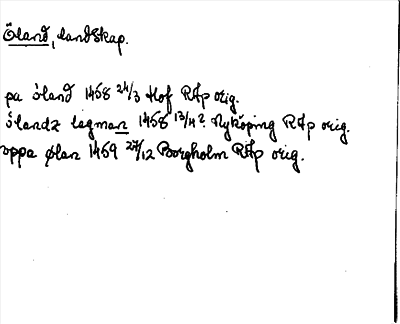 Öland, landskap.
pa öland 1458 24/3 Hof RAp orig.
ölandz lagman 1458 13/4? Nyköping RAp orig.
oppa ølan 1459 27/12 Borgholm RAp orig.